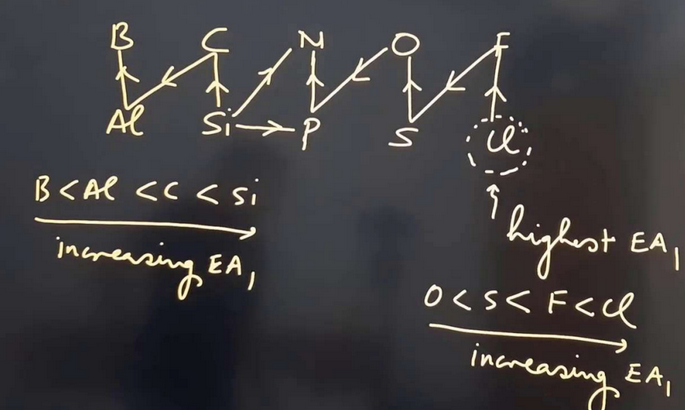 B C N O F
Al Si P S Cl
B < Al < C < Si
increasing EA1
highest EA1
O < S < F < Cl
increasing EA1